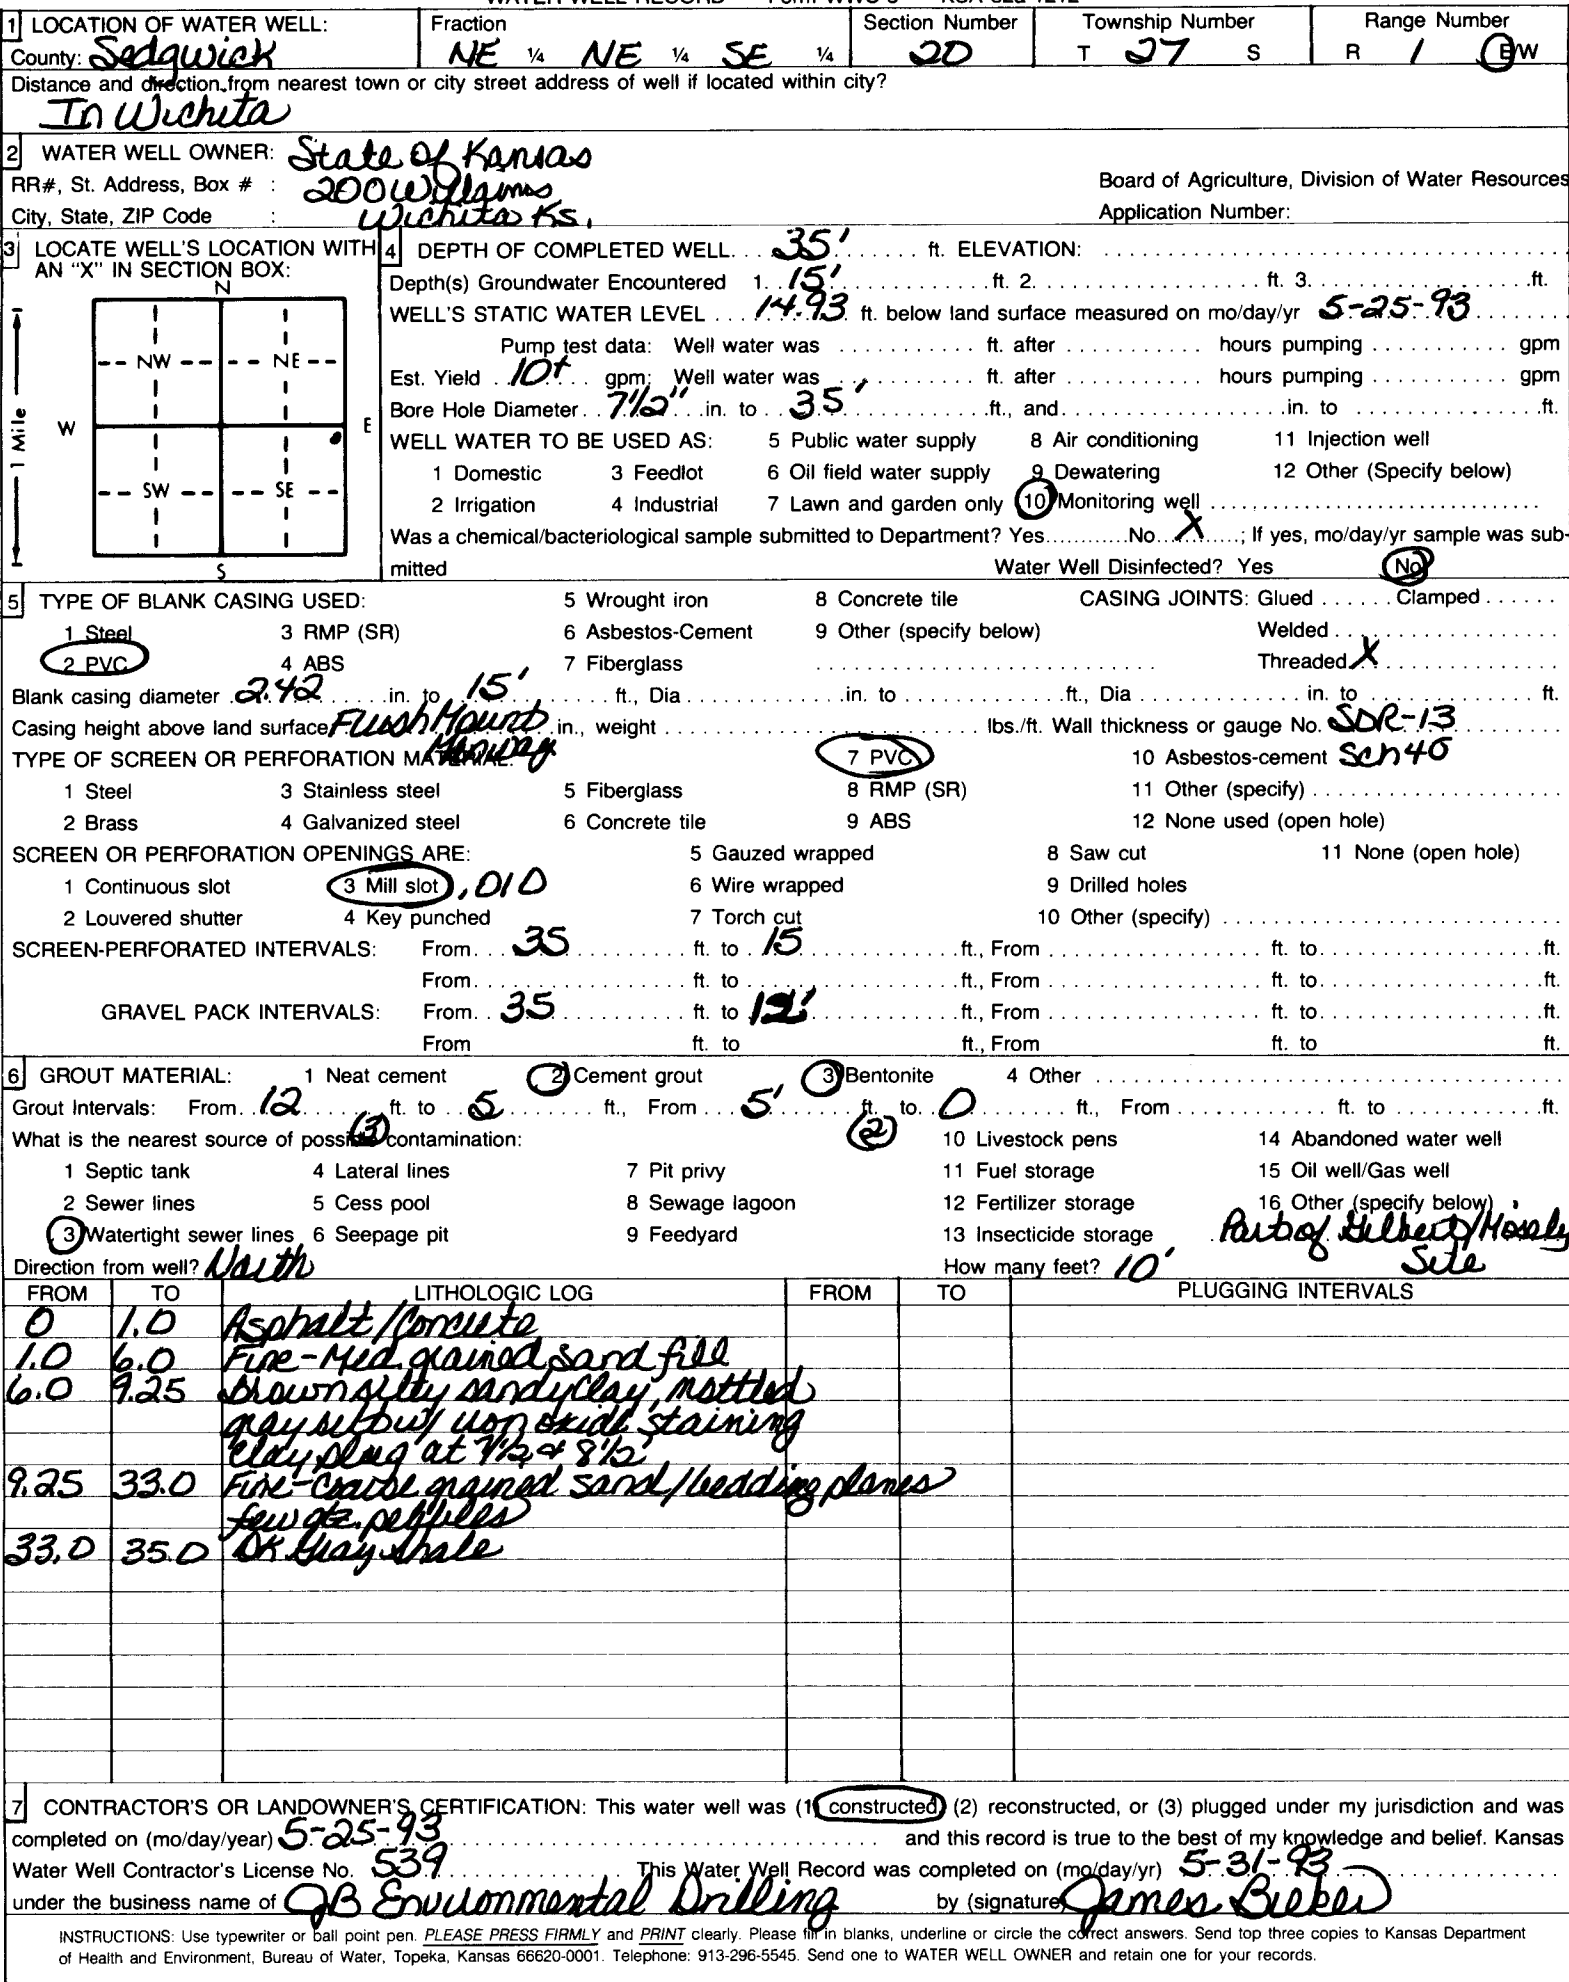 WATER WELL RECORD Form WWC-5 KSA 82a-1212
1 LOCATION OF WATER WELL: Fraction Section Number Township Number Range Number
County: Sedgwick NE ¼ NE ¼ SE ¼ 20 T 27 S R 1 E/W
Distance and direction from nearest town or city street address of well if located within city?
In Wichita
2 WATER WELL OWNER: State of Kansas
RR#, St. Address, Box # : 200 Williams Board of Agriculture, Division of Water Resources
City, State, ZIP Code : Wichita Ks. Application Number:
3 LOCATE WELL'S LOCATION WITH AN "X" IN SECTION BOX:
N
NW NE
W E
SW SE
S
1 Mile
4 DEPTH OF COMPLETED WELL 35' ft. ELEVATION:
Depth(s) Groundwater Encountered 1. 15' ft. 2. ft. 3. ft.
WELL'S STATIC WATER LEVEL 14.93 ft. below land surface measured on mo/day/yr 5-25-93
Pump test data: Well water was ft. after hours pumping gpm
Est. Yield 10+ gpm: Well water was ft. after hours pumping gpm
Bore Hole Diameter 7 1/2" in. to 35' ft., and in. to ft.
WELL WATER TO BE USED AS: 5 Public water supply 8 Air conditioning 11 Injection well
1 Domestic 3 Feedlot 6 Oil field water supply 9 Dewatering 12 Other (Specify below)
2 Irrigation 4 Industrial 7 Lawn and garden only 10 Monitoring well
Was a chemical/bacteriological sample submitted to Department? Yes No X ; If yes, mo/day/yr sample was sub-
mitted Water Well Disinfected? Yes No
5 TYPE OF BLANK CASING USED: 5 Wrought iron 8 Concrete tile CASING JOINTS: Glued Clamped
1 Steel 3 RMP (SR) 6 Asbestos-Cement 9 Other (specify below) Welded
2 PVC 4 ABS 7 Fiberglass Threaded X
Blank casing diameter 2.42 in. to 15' ft., Dia in. to ft., Dia in. to ft.
Casing height above land surface Flush Mount in., weight lbs./ft. Wall thickness or gauge No. SDR-13
TYPE OF SCREEN OR PERFORATION MATERIAL: 7 PVC 10 Asbestos-cement Sch 40
1 Steel 3 Stainless steel 5 Fiberglass 8 RMP (SR) 11 Other (specify)
2 Brass 4 Galvanized steel 6 Concrete tile 9 ABS 12 None used (open hole)
SCREEN OR PERFORATION OPENINGS ARE: 5 Gauzed wrapped 8 Saw cut 11 None (open hole)
1 Continuous slot 3 Mill slot .010 6 Wire wrapped 9 Drilled holes
2 Louvered shutter 4 Key punched 7 Torch cut 10 Other (specify)
SCREEN-PERFORATED INTERVALS: From 35 ft. to 15 ft., From ft. to ft.
From ft. to ft., From ft. to ft.
GRAVEL PACK INTERVALS: From 35 ft. to 12' ft., From ft. to ft.
From ft. to ft., From ft. to ft.
6 GROUT MATERIAL: 1 Neat cement 2 Cement grout 3 Bentonite 4 Other
Grout Intervals: From 12 ft. to 5 ft., From 5' ft. to 0 ft., From ft. to ft.
What is the nearest source of possible (3) contamination: (2) 10 Livestock pens 14 Abandoned water well
1 Septic tank 4 Lateral lines 7 Pit privy 11 Fuel storage 15 Oil well/Gas well
2 Sewer lines 5 Cess pool 8 Sewage lagoon 12 Fertilizer storage 16 Other (specify below)
3 Watertight sewer lines 6 Seepage pit 9 Feedyard 13 Insecticide storage Part of Gilbert/Mosely
Direction from well? North How many feet? 10' Site
FROM TO LITHOLOGIC LOG FROM TO PLUGGING INTERVALS
0 1.0 Asphalt/Concrete
1.0 6.0 Fine-Med. grained sand fill
6.0 9.25 Brown silty sandy clay, mottled
gray silt w/ iron oxide staining
Clay plug at 7 1/2 & 8 1/2'
9.25 33.0 Fine-Coarse grained sand/bedding planes
few qtz. pebbles
33.0 35.0 DK Gray shale
7 CONTRACTOR'S OR LANDOWNER'S CERTIFICATION: This water well was (1) constructed, (2) reconstructed, or (3) plugged under my jurisdiction and was
completed on (mo/day/year) 5-25-93 and this record is true to the best of my knowledge and belief. Kansas
Water Well Contractor's License No. 539 This Water Well Record was completed on (mo/day/yr) 5-31-93
under the business name of JB Environmental Drilling by (signature) James Bieker
INSTRUCTIONS: Use typewriter or ball point pen. PLEASE PRESS FIRMLY and PRINT clearly. Please fill in blanks, underline or circle the correct answers. Send top three copies to Kansas Department
of Health and Environment, Bureau of Water, Topeka, Kansas 66620-0001. Telephone: 913-296-5545. Send one to WATER WELL OWNER and retain one for your records.